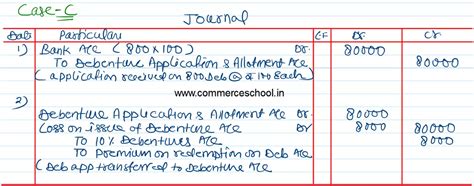 Case-C
Journal
Date Particulars LF Dr Cr
1) Bank A/c (800x100) Dr. 80000
To Debenture Application & Allotment A/c 80000
(application received on 800 Deb @ ₹ 100 Each)
www.commerceschool.in
2)
Debenture Application & Allotment A/c Dr 80000
Loss on issue of Debenture A/c Dr 8000
To 10% Debentures A/c 80000
To Premium on redemption on Deb A/c 8000
(Deb app transferred to Debenture A/c)